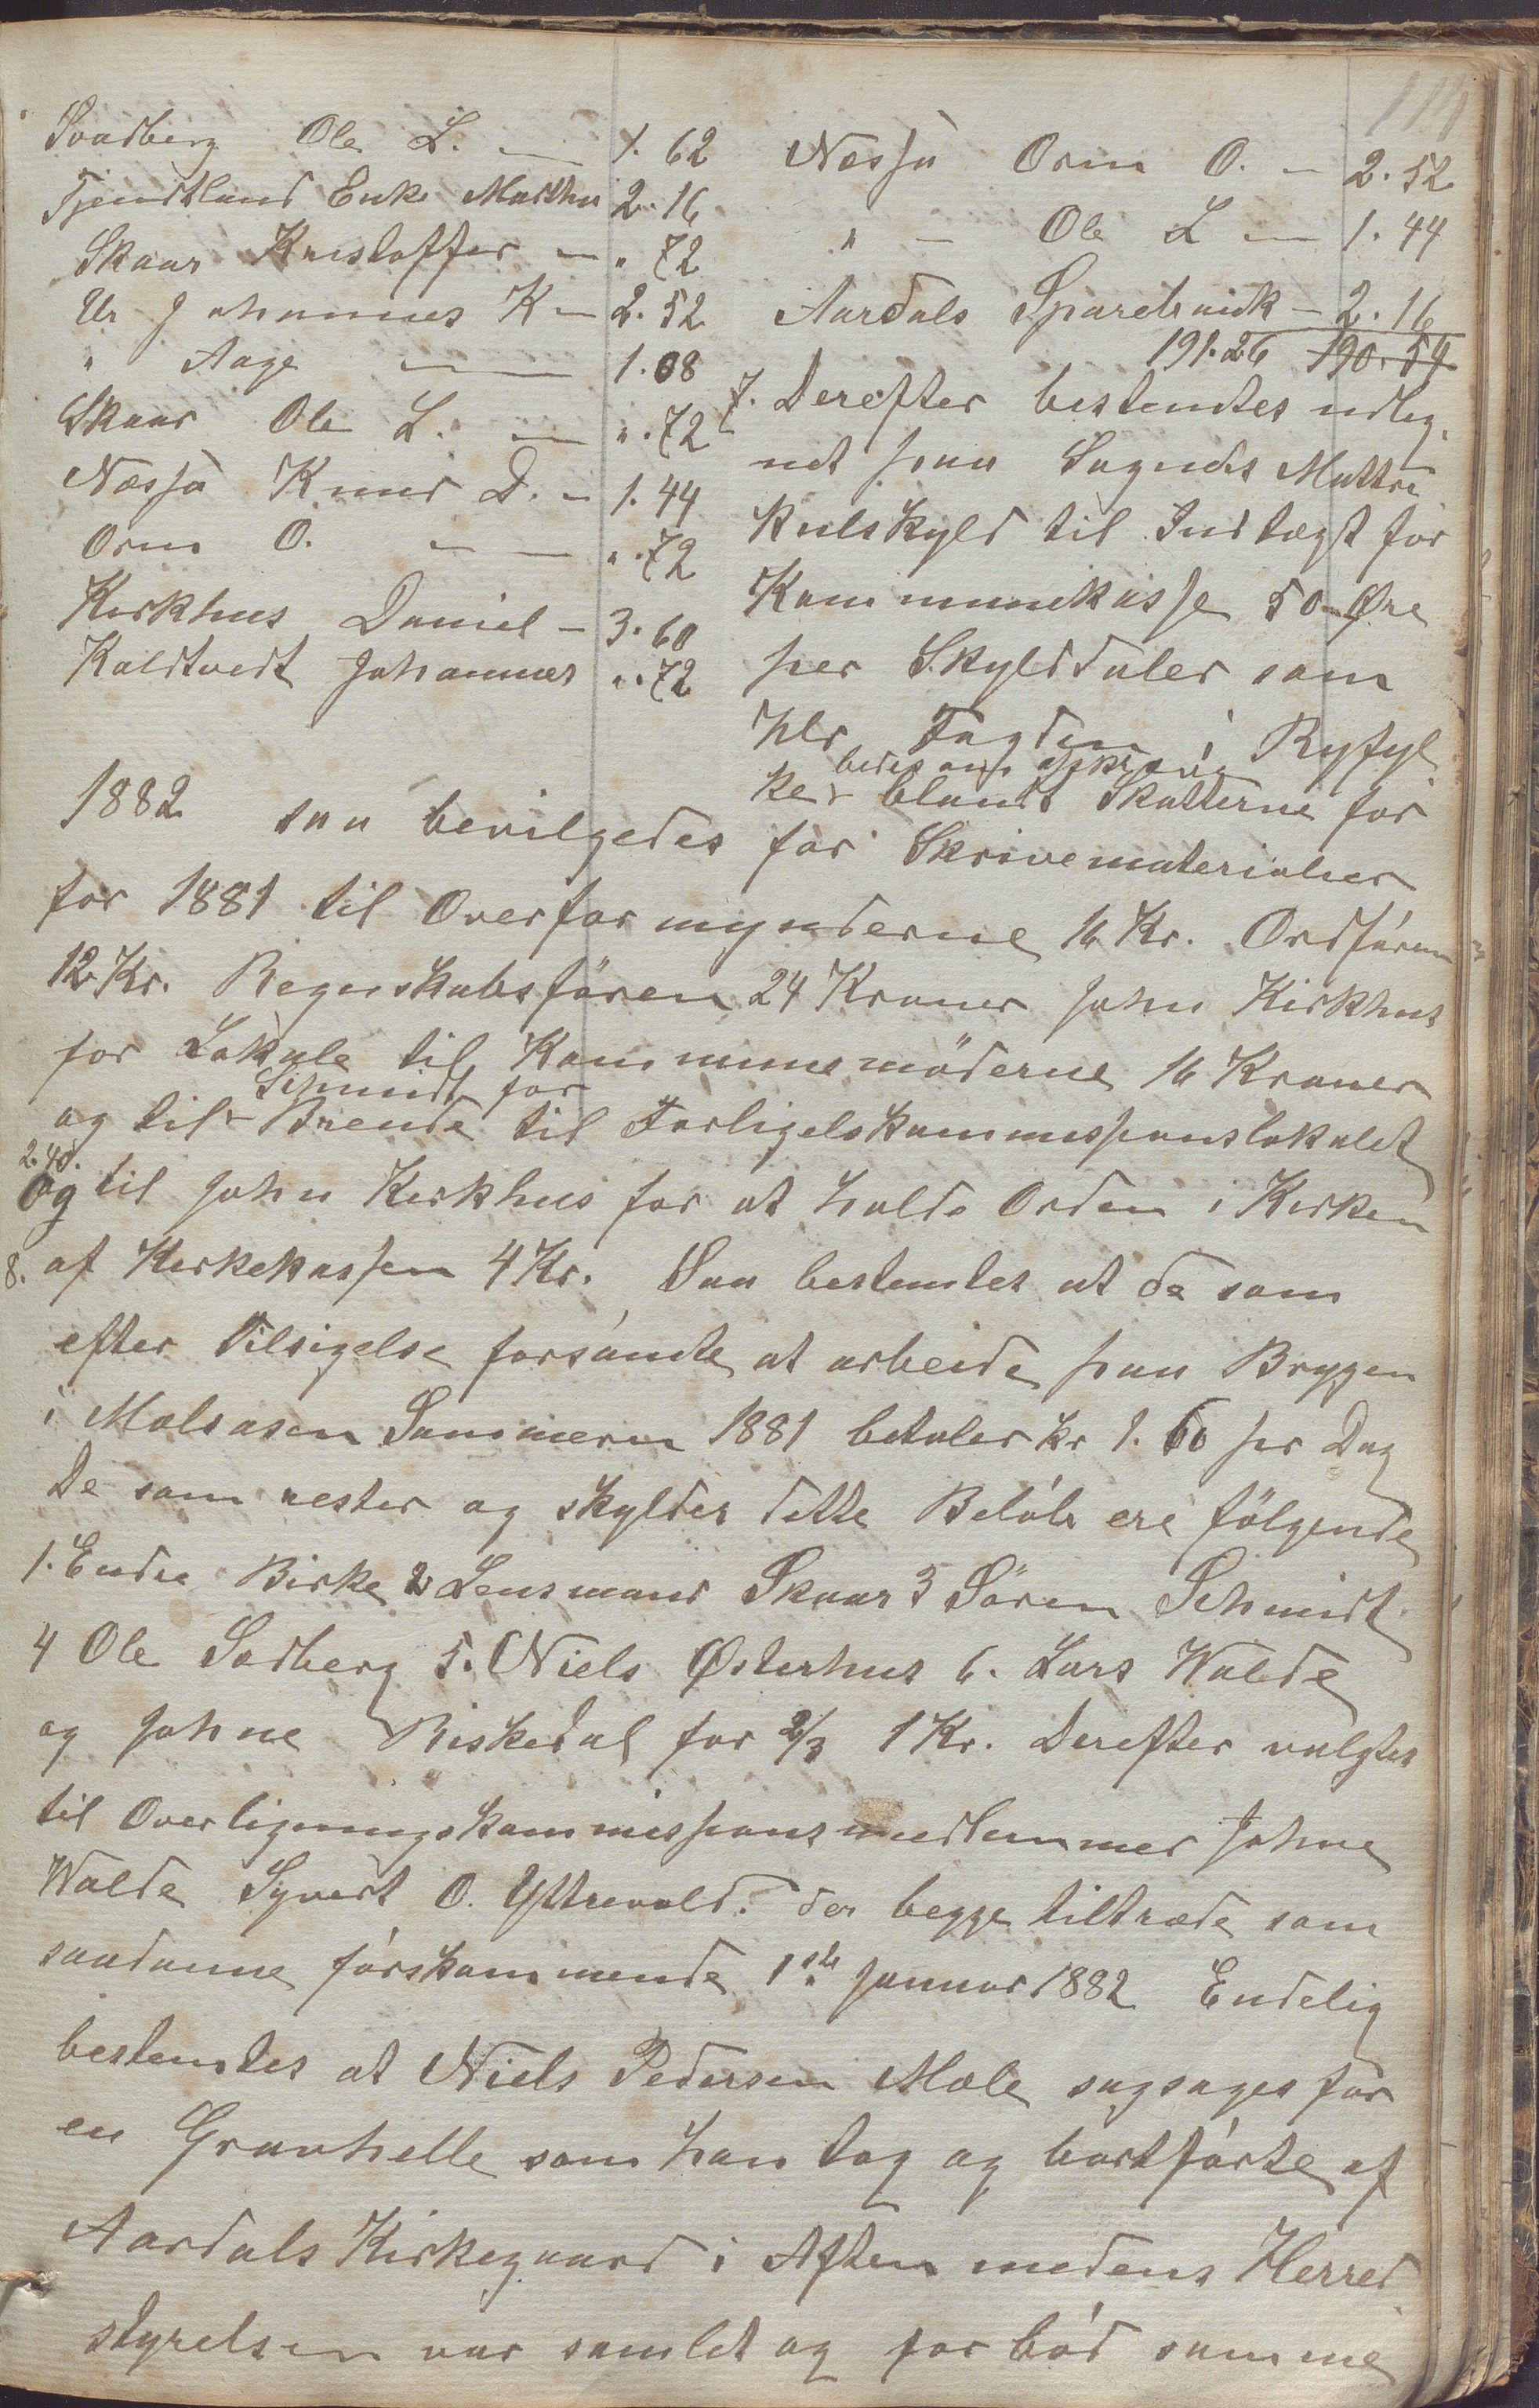 114
Svadberg Ole L. — 1. 62
Tjentland Enke Martha 2. 16
Skaar Kristoffer — „ 72
Ur Johannes K — 2. 52
„ Aage — 1. 08
Skaar Ole L. — „. 72
Næssa Knud D. — 1. 44
Orm O. — — „. 72
Kirkhus Daniel — 3. 60
Kaldtvedt Johannes „. 72
Næssa Orm O. — 2. 52
„ — Ole L — 1. 44
Aardals Sparebank — 2. 16
191.26 190. 54
7. Derefter bestemtes udlig-
net paa Sognets Matri
kulskyld til Indtægt for
Kommunekasse 50 Øre
per Skylddaler som
Hr Fogden i Ryfyl
bedes om
ke blandt Skatterne for
1882 saa bevilgedes for Skrivematerialier
for 1881 til Overformynderne 16 Kr. Ordføren
12 Kr. Regnskabsføren 24 Kroner John Kirkhus
for Lokale til Kommunemöderne 16 Kroner
Schmidt for
og til Brende til Forligelskommissionslokalet
2.40.
Og til John Kirkhus for at holde Orden i Kirken
8. af Kirkekassen 4 Kr. Saa bestemtes at de som
efter Tilsigelse forsømte at arbeide paa Bryggen
i Molaasen Sommeren 1881 betaler Kr 1. 60 per Dag
De som rester og skylder dette Beløb ere følgende
1. Endre Birke 2 Lensmand Skaar 3 Søren Schmidt
4 Ole Sedberg 5. Niels Østerhus 6. Lars Walde
og Johne Riskedal for 2/3 1 Kr. Derefter valgtes
til Overligningskommissionsmedlemmer Johne
Walde Syvert O. Yttrevold. der begge tiltræde som
saadanne førskommende 1ste Januar 1882 Endelig
bestemtes at Niels Pedersen Mæle sagsøges for
en Gravhelle som han tog og bortførte af
Aardals Kirkegaard i Aften medens Herred
styrelsen var samlet og forbød samme